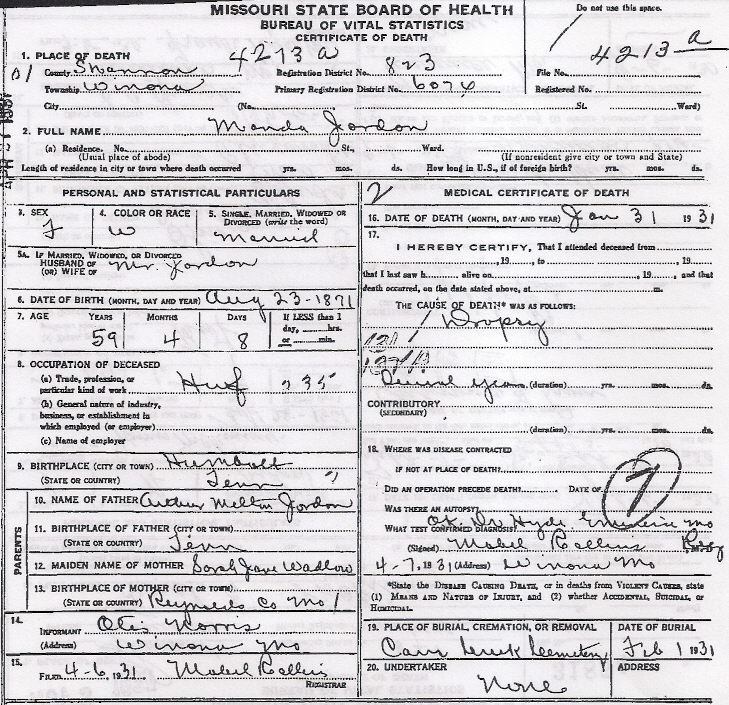 MISSOURI STATE BOARD OF HEALTH
BUREAU OF VITAL STATISTICS
CERTIFICATE OF DEATH
Do not use this space.
4213 a
4213 a
1. PLACE OF DEATH
County Shannon Registration District No. 823 File No.
Township Winona Primary Registration District No. 6074 Registered No.
City (No. St. Ward)
2. FULL NAME Manda Jordon
(a) Residence. No. St., Ward.
(Usual place of abode) (If nonresident give city or town and State)
Length of residence in city or town where death occurred yrs. mos. ds. How long in U.S., if of foreign birth? yrs. mos. ds.
PERSONAL AND STATISTICAL PARTICULARS
3. SEX 4. COLOR OR RACE 5. SINGLE, MARRIED, WIDOWED OR DIVORCED (write the word)
F W Married
5A. IF MARRIED, WIDOWED, OR DIVORCED
HUSBAND OF
(OR) WIFE OF Mr. Jordon
6. DATE OF BIRTH (MONTH, DAY AND YEAR) Aug 23-1871
7. AGE YEARS MONTHS DAYS If LESS than 1 day, hrs. or min.
59 4 8
8. OCCUPATION OF DECEASED
(a) Trade, profession, or particular kind of work 235
(b) General nature of industry, business, or establishment in which employed (or employer)
(c) Name of employer
9. BIRTHPLACE (CITY OR TOWN) Humbolt
(STATE OR COUNTRY) Tenn
PARENTS
10. NAME OF FATHER Arthur Jordon
11. BIRTHPLACE OF FATHER (CITY OR TOWN)
(STATE OR COUNTRY) Tenn
12. MAIDEN NAME OF MOTHER Sarah Jane Wadlow
13. BIRTHPLACE OF MOTHER (CITY OR TOWN)
(STATE OR COUNTRY) Reynolds Co Mo /
14.
INFORMANT Otis Norris
(Address) Winona Mo
15.
FILED 4-6, 1931 Mabel Rollins
REGISTRAR
2
MEDICAL CERTIFICATE OF DEATH
16. DATE OF DEATH (MONTH, DAY AND YEAR) Jan 31 1931
17.
I HEREBY CERTIFY, That I attended deceased from
, 19 , to , 19
that I last saw h alive on , 19 , and that
death occurred, on the date stated above, at m.
THE CAUSE OF DEATH* WAS AS FOLLOWS:
Dropsy
(duration) yrs. mos. ds.
CONTRIBUTORY
(SECONDARY)
(duration) yrs. mos. ds.
18. WHERE WAS DISEASE CONTRACTED
IF NOT AT PLACE OF DEATH?
DID AN OPERATION PRECEDE DEATH? DATE OF
7
WAS THERE AN AUTOPSY?
WHAT TEST CONFIRMED DIAGNOSIS? OK. Dr Hyde Eminence Mo
(Signed) Mabel Rollins Reg
4-7, 1931 (Address) Winona Mo
*State the DISEASE CAUSING DEATH, or in deaths from VIOLENT CAUSES, state
(1) MEANS AND NATURE OF INJURY, and (2) whether ACCIDENTAL, SUICIDAL, or
HOMICIDAL.
19. PLACE OF BURIAL, CREMATION, OR REMOVAL DATE OF BURIAL
Cemetery Feb 1 1931
20. UNDERTAKER ADDRESS
None